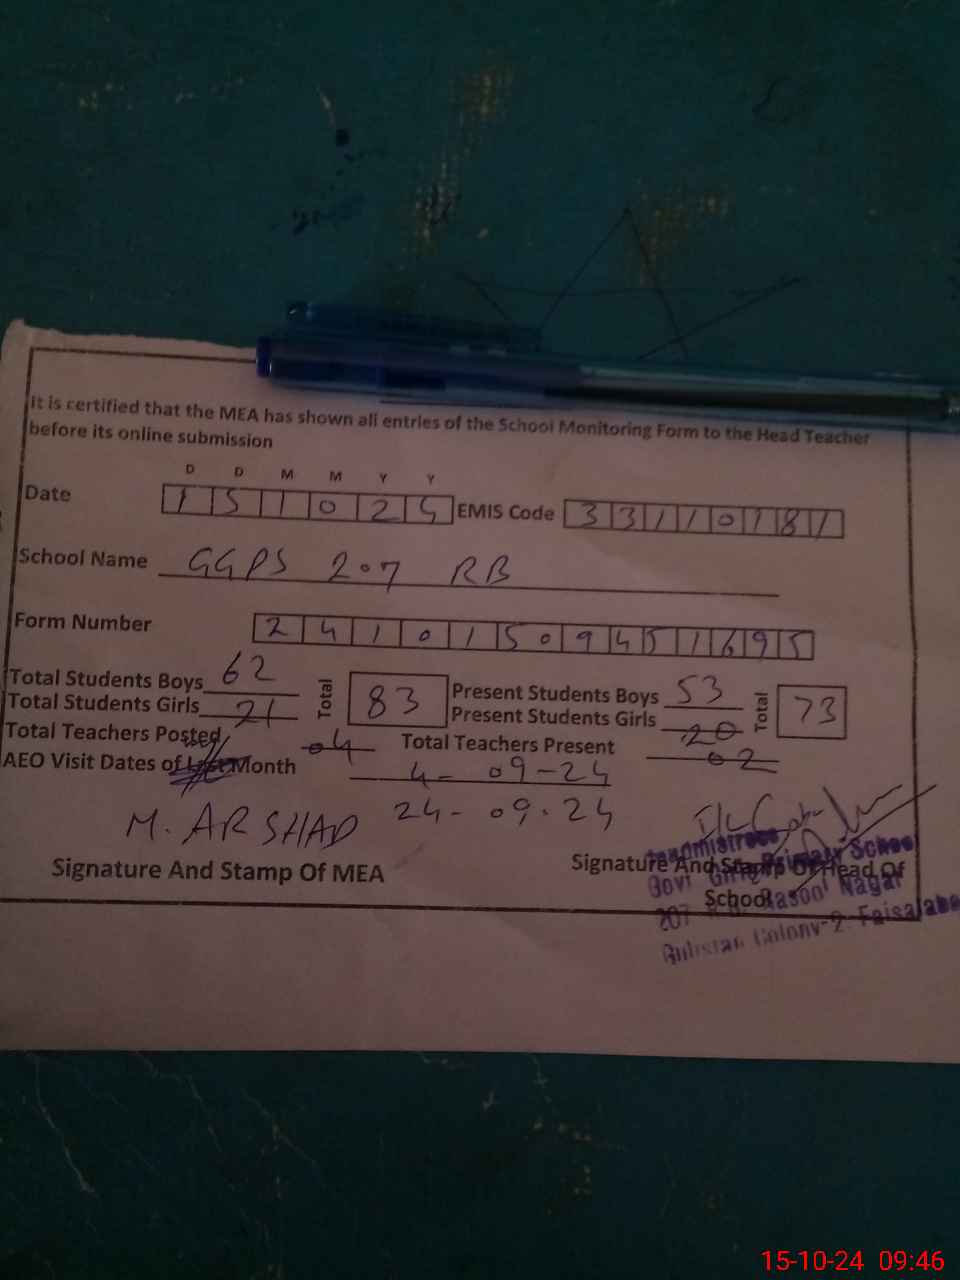 It is certified that the MEA has shown all entries of the School Monitoring Form to the Head Teacher
before its online submission
D D M M Y Y
Date 1 5 1 0 2 4 EMIS Code 3 3 1 1 0 1 8 1
School Name GGPS 207 RB
Form Number 2 4 1 0 1 5 0 9 4 5 1 6 9 5
Total Students Boys 62 Total 83 Present Students Boys 53 Total 73
Total Students Girls 21 Present Students Girls 20
Total Teachers Posted 04 Total Teachers Present 02
AEO Visit Dates of Month 4- 09-24
24-09-24
M. ARSHAD
Signature And Stamp Of MEA Signature And Stamp Of Head Of
School
Headmistress
Govt Girls Primary School
207 R.B. Rasool Nagar
Gulistan Colony-2 Faisalaba
15-10-24 09:46